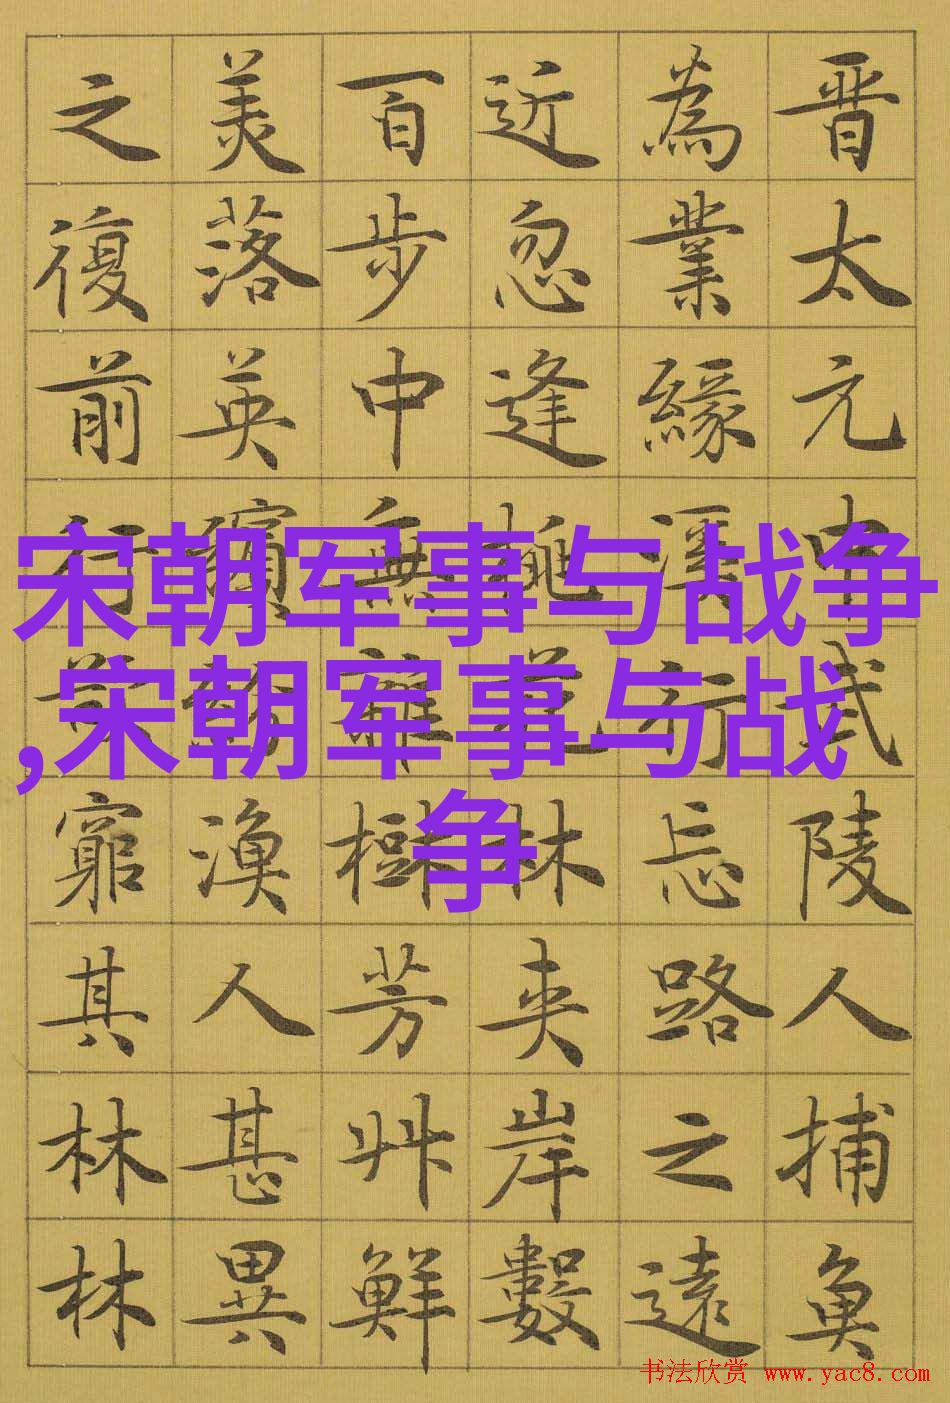 晋太元中武陵人捕魚
為業緣溪行忘路之遠
近忽逢桃花林夾岸數
百步中無雜樹芳艸鮮
美落英繽紛漁人甚異
之復前行欲窮其林林
宋朝军事与战争
,宋朝军事与战
争
书法欣赏 www.yac8.com